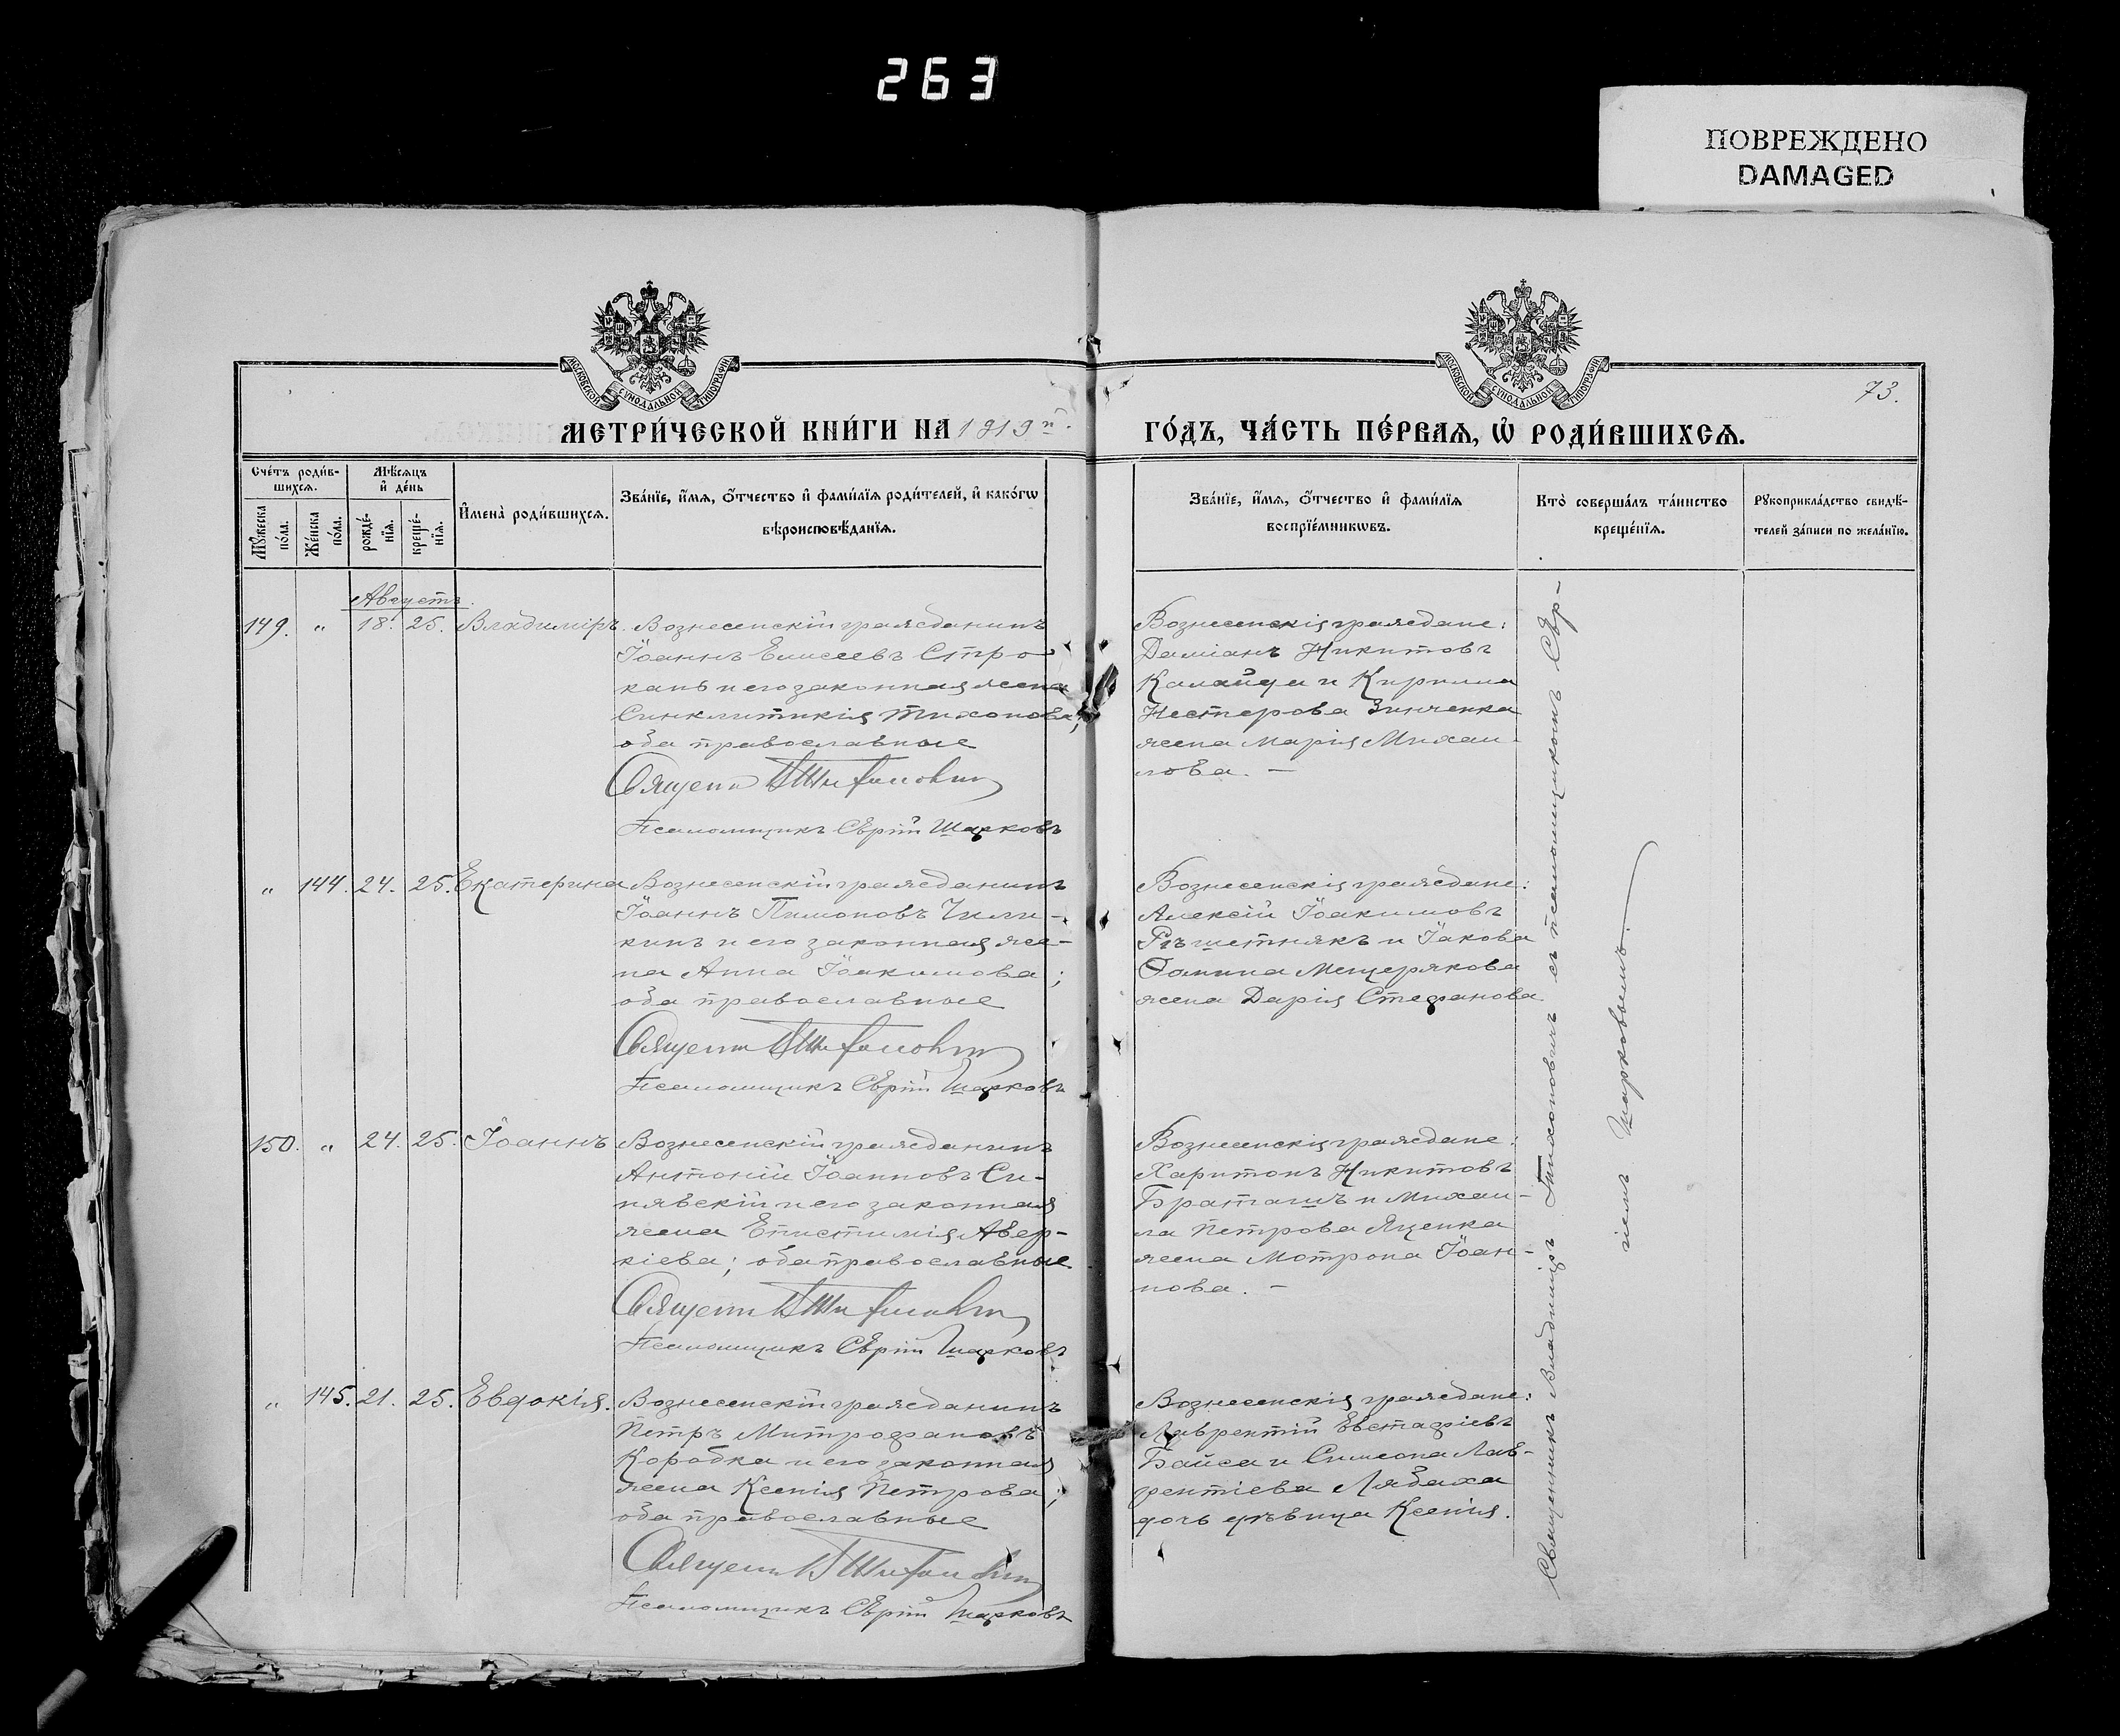 263
ПОВРЕЖДЕНО
DAMAGED
МОСКОВСКОЙ СѴНОДАЛЬНОЙ ТИПОГРАФІИ
МОСКОВСКОЙ СѴНОДАЛЬНОЙ ТИПОГРАФІИ
73.
МЕТРИ́ЧЕСКОЙ КНИ́ГИ НА 1919й
ГО́ДЪ, ЧА́СТЬ ПЕ́РВАѦ, Ѡ҆ РОДИ́ВШИХСѦ.
Сче́тъ роди́в-
шихсѧ.
Мꙋ́жеска
по́ла.
Же́нска
по́ла.
Мѣ́сѧцъ
и҆ де́нь
рожде́-
нїѧ.
креще́-
нїѧ.
И҆мена̀ роди́вшихсѧ.
Зва́нїе, и҆́мѧ, ѻ҆́тчество и҆ фами́лїѧ роди́телей, и҆ како́гѡ
вѣроисповѣ́данїѧ.
Зва́нїе, и҆́мѧ, ѻ҆́тчество и҆ фами́лїѧ
воспрїе́мникѡвъ.
Кто̀ соверша́лъ та́инство
креще́нїѧ.
Рꙋкоприкла́дство свидѣ́-
телей за́писи по жела́нїю.
Августъ.
149. „ 18. 25. Владиміръ.
Вознесенскій гражданинъ
Іоаннъ Елисеевъ Стро-
канъ и его законная жена
Синклитикія Тихонова;
оба православные
Священ
Псаломщикъ Сѣргій Шарковъ
Вознесенскія граждане:
Даміанъ Никитовъ
Калайда и Кирилла
Нестерова Зинченка
жена Марія Михаи-
лова. —
„ 144. 24. 25. Екатерина
Вознесенскій гражданинъ
Іоаннъ Пимоновъ Чили-
кинъ и его законная же-
на Анна Іоакимова;
оба православные
Священ
Псаломщикъ Сѣргій Шарковъ
Вознесенскія граждане:
Алексій Іоакимовъ
Рѣшетнякъ и Іакова
Фомина Мещерякова
жена Дарія Стефанова
150. „ 24. 25. Іоаннъ
Вознесенскій гражданинъ
Антоній Іоанновъ Си-
нявскій и его законная
жена Епистимія Авер-
кіева; оба православные
Священ
Псаломщикъ Сѣргій Шарковъ
Вознесенскія граждане:
Харитонъ Никитовъ
Браташъ и Михаи-
ла Петрова Яценка
жена Мотрона Іоан-
нова. —
„ 145. 21. 25. Евдокія.
Вознесенскій гражданинъ
Петръ Митрофановъ
Коробка и его законная
жена Ксенія Петрова;
оба православные
Священ
Псаломщикъ Сѣргій Шарковъ
Вознесенскія граждане:
Лаврентій Евстафіевъ
Байса и Симеона Лав-
рентіева Лябаха
дочь дѣвица Ксенія.
Священникъ Владиміръ Тихоновичъ съ псаломщикомъ Сѣр-
гіемъ Шарковымъ.